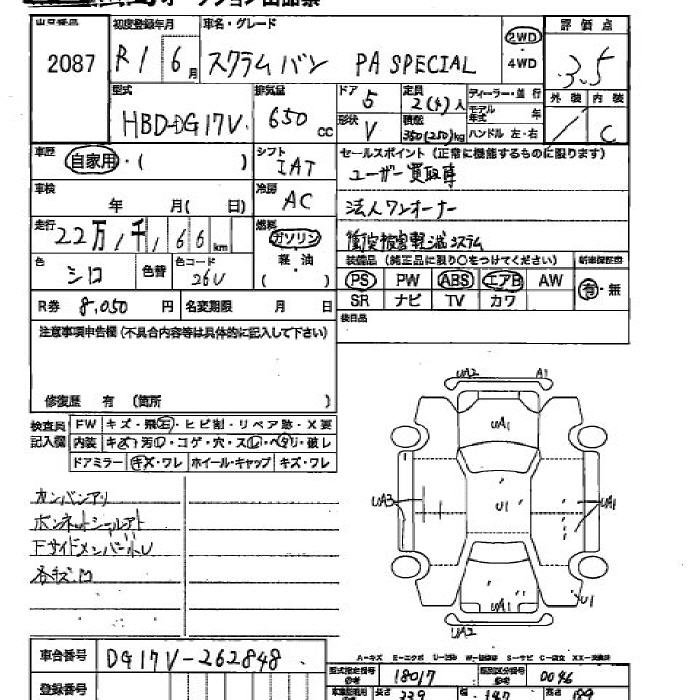 2087
初度登録年月
R1 6月
車名・グレード
スクラムバン PA SPECIAL
2WD
・
4WD
評価点
3.5
外装 内装
C
型式
HBD-DG17V
排気量
650 cc
ドア 5
形状 V
定員 2(4)人
積載 350(250)kg
ディーラー・並行
モデル年式 年
ハンドル 左・右
車歴 自家用・( )
シフト IAT
車検 年 月( 日)
冷房 AC
走行 22万,1千,166km
燃料 ガソリン
軽・油
( )
色 シロ 色替 色コード 26U
R券 8,050円 名変期限 月 日
セールスポイント(正常に機能するものに限ります)
ユーザー買取車
法人ワンオーナー
衝突被害軽減システム
装備品(純正品に限り○をつけてください) 新車保証書
PS PW ABS エアB AW 有・無
SR ナビ TV カワ
後日品
注意事項申告欄(不具合内容等は具体的に記入して下さい)
修復歴 有 (箇所 )
検査員記入欄
FW キズ・飛石・ヒビ割・リペア跡・X要
内装 キズ・汚レ・コゲ・穴・スレ・ヘタリ・破レ
ドアミラー キズ・ワレ ホイール・キャップ キズ・ワレ
カンバンアリ
ボンネットシールアト
Fサイドメンバー小U
各キズ凹
UA2 A1
UA1
UA3 U1 UA1
UA1 U1
UA2
A=キズ E=エクボ U=凹み W=補修跡 S=サビ C=腐食 XX=交換済
車台番号 DG17V-262848
型式指定番号 18017 類別区分番号 0046
登録番号
長さ 339 幅 147 高さ 189